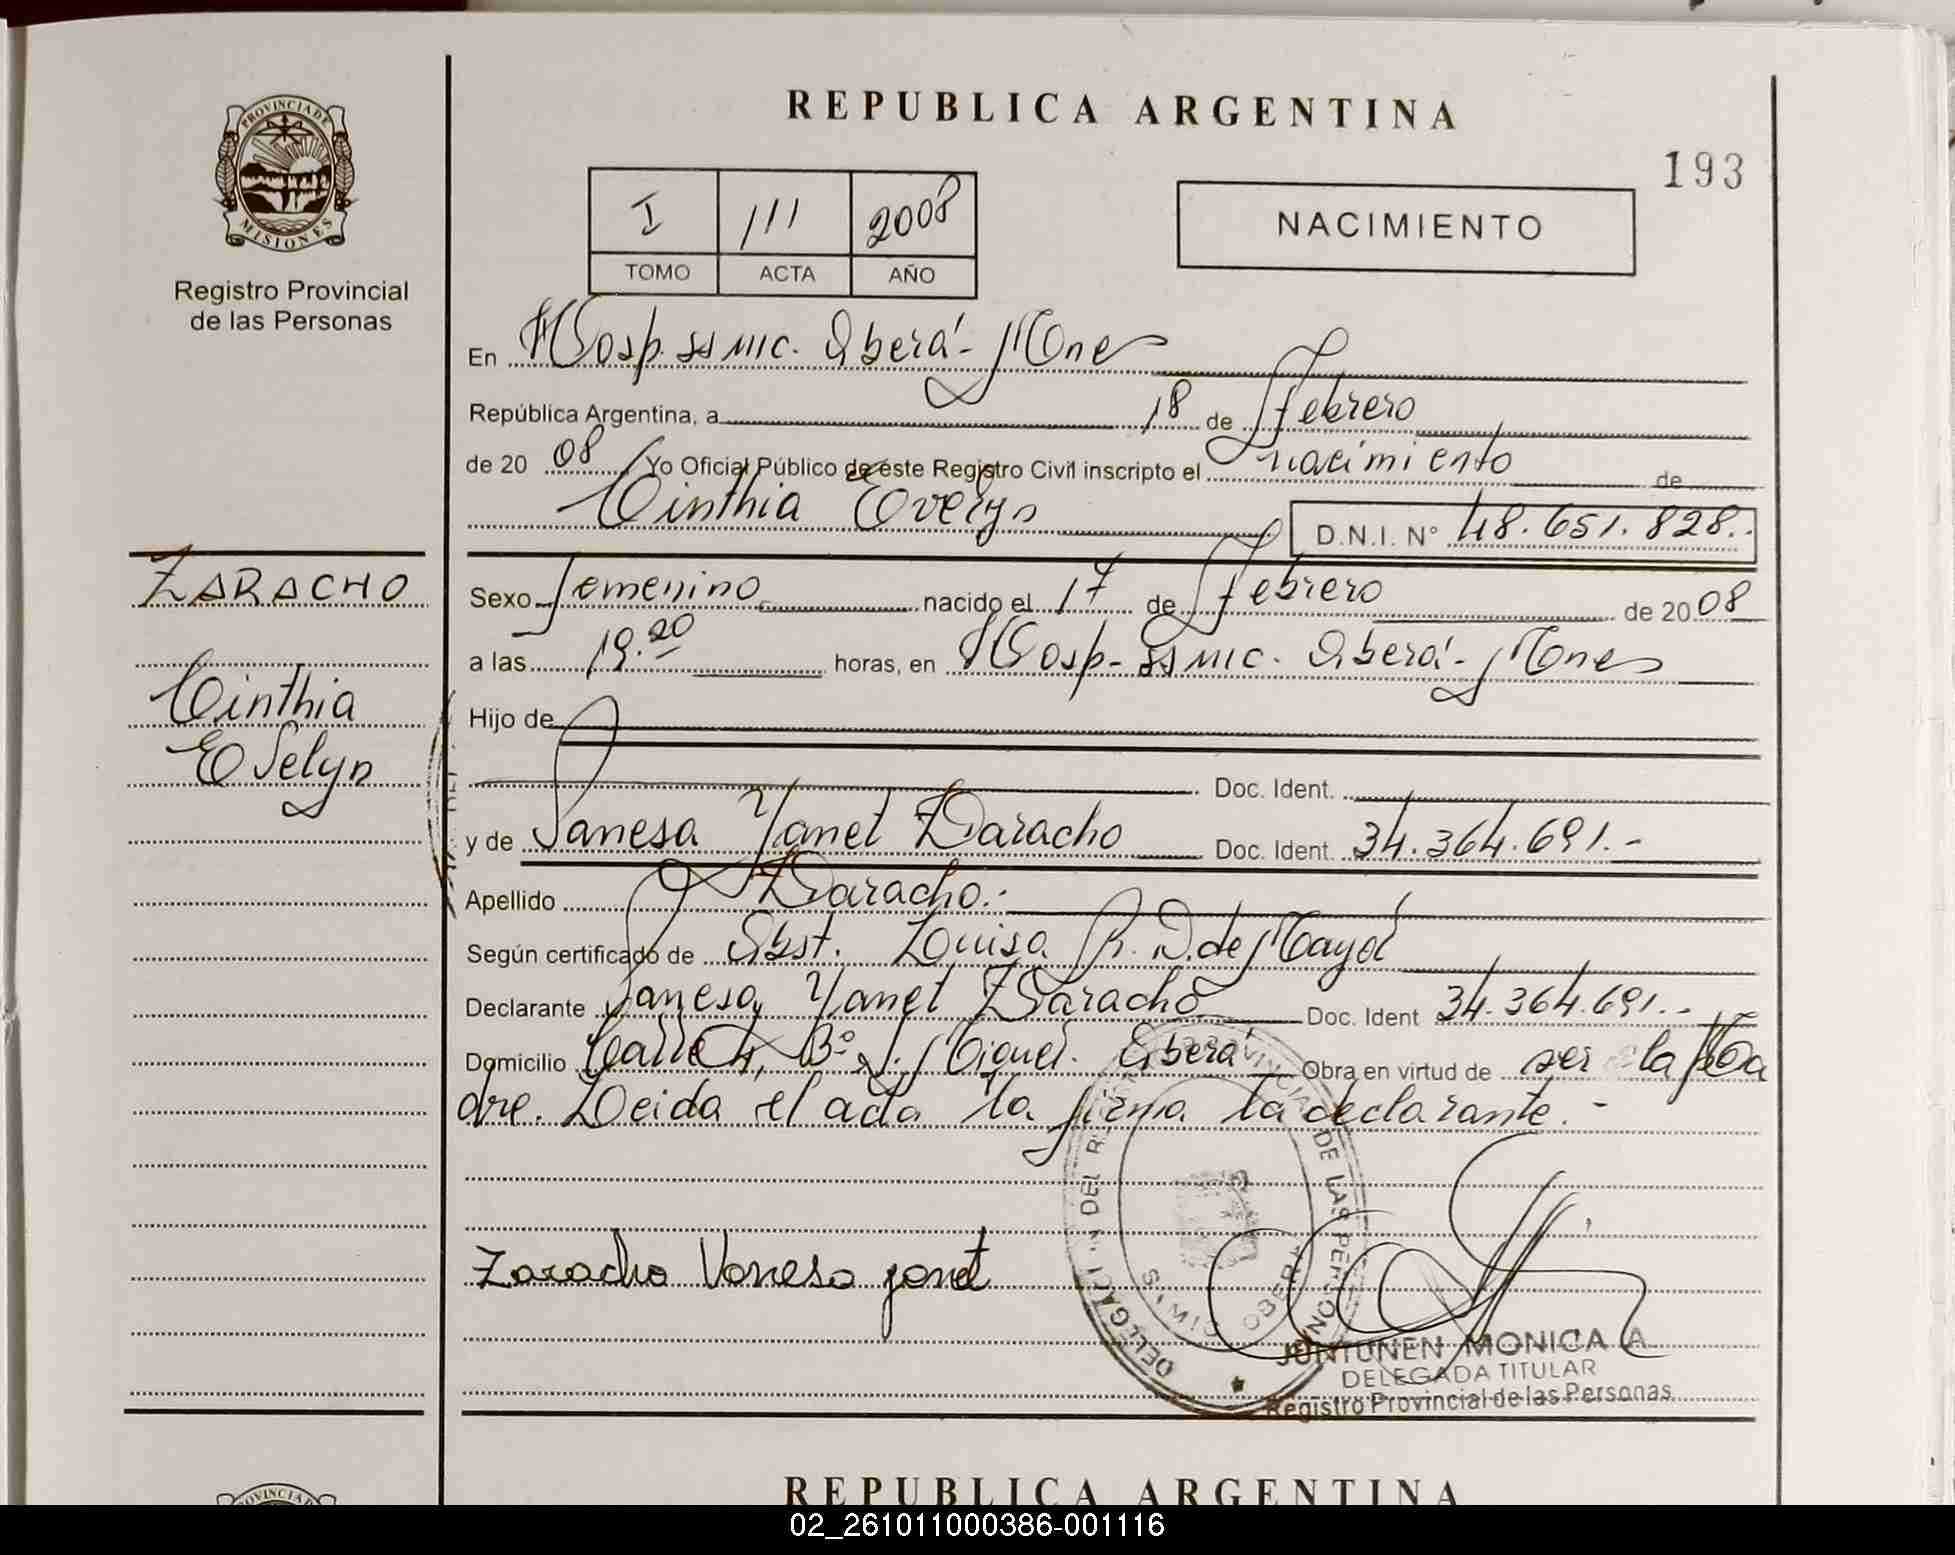 REPUBLICA ARGENTINA
193
PROVINCIA DE
MISIONES
Registro Provincial
de las Personas
I 111 2008
TOMO ACTA AÑO
NACIMIENTO
En Hosp. SSMIC. Oberá - Mnes
República Argentina, a 18 de Febrero
de 20 08 Yo Oficial Público de este Registro Civil inscripto el nacimiento de
Cinthia Evelyn
D.N.I. N° 48.651.828.-
ZARACHO
Cinthia
Evelyn
Sexo femenino nacido el 17 de Febrero de 20 08
a las 19.20 horas, en Hosp- SSMIC. Oberá - Mnes
Hijo de
Doc. Ident.
y de Vanesa Yanet Zaracho Doc. Ident. 34.364.691.-
Apellido Zaracho.-
Según certificado de Obst. Luisa R. D. de Mayol
Declarante Vanesa Yanet Zaracho Doc. Ident 34.364.691.-
Domicilio Calle 4, B° S. Miguel. Oberá Obra en virtud de ser la Ma
dre. Leida el acta la firma la declarante.-
Zaracho Vanesa yanet
DELEGACION DEL REGISTRO PROVINCIAL DE LAS PERSONAS
SAMIC OBERA
JUNTUNEN MONICA A
DELEGADA TITULAR
Registro Provincial de las Personas
OVINCIA D
REPUBLICA ARGENTINA
02_261011000386-001116